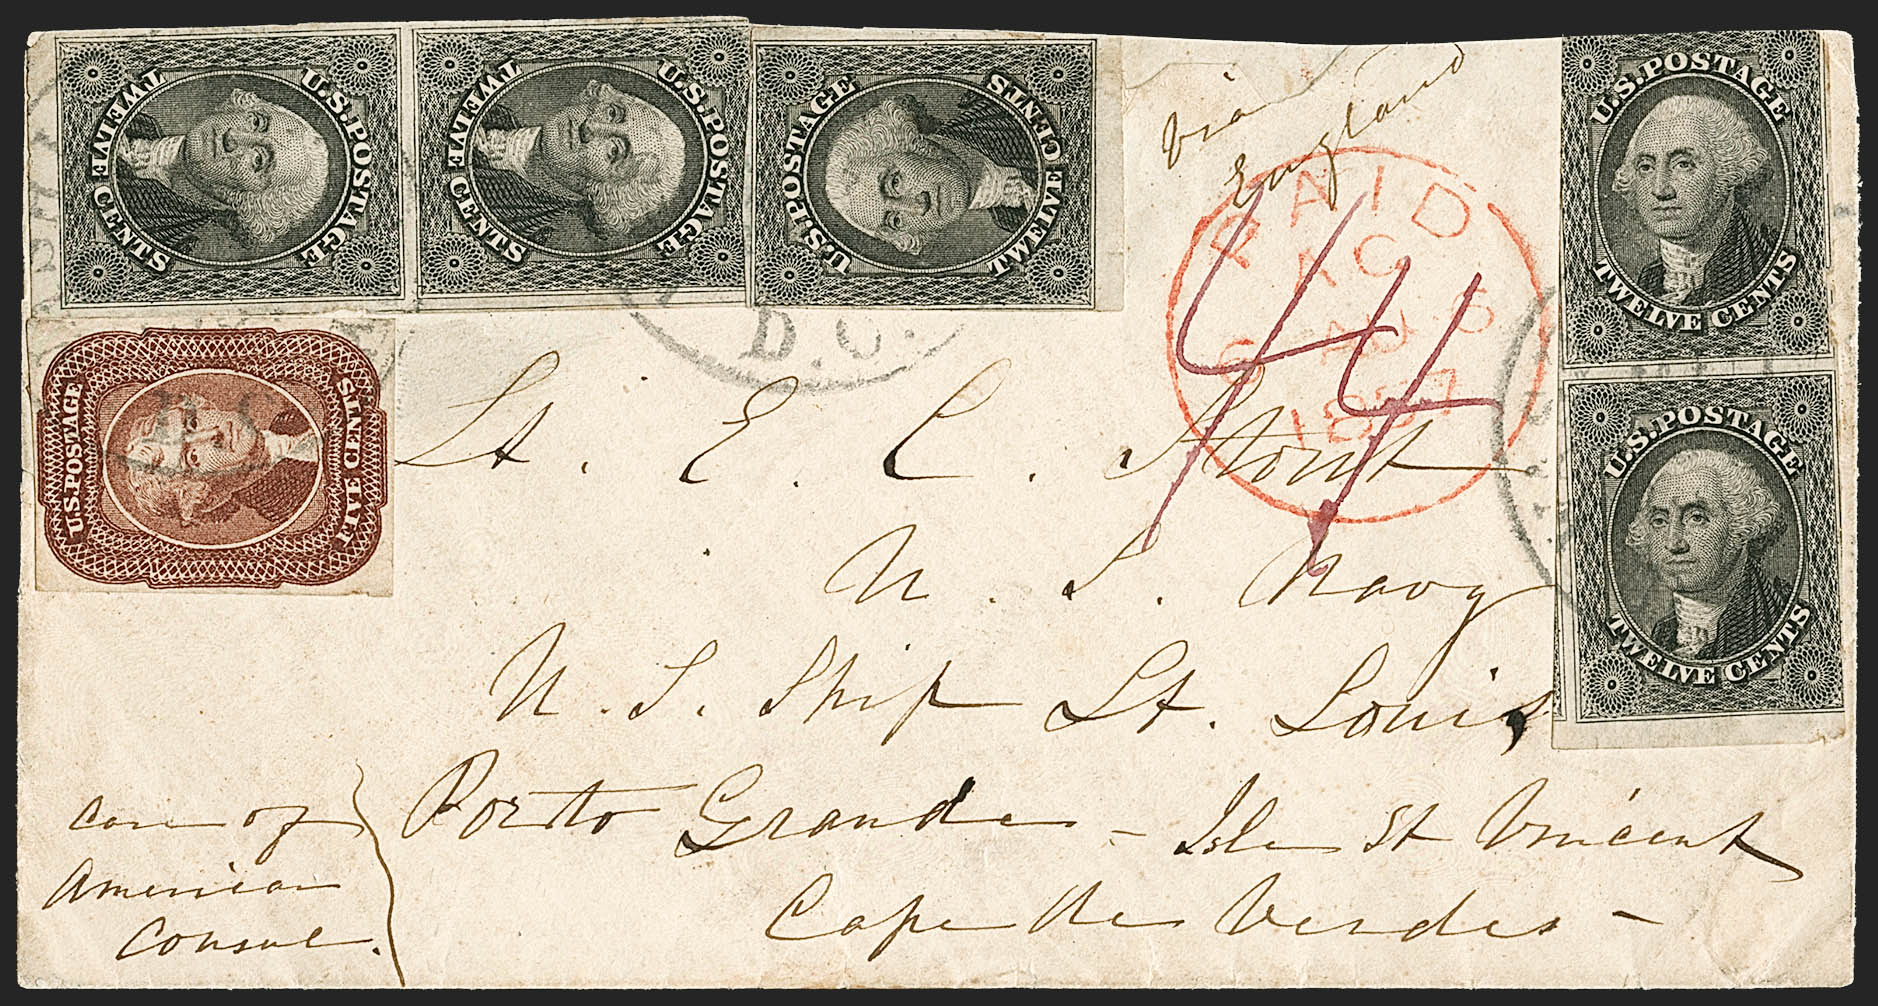 U.S. POSTAGE
TWELVE CENTS
U.S. POSTAGE
TWELVE CENTS
U.S. POSTAGE
TWELVE CENTS
U.S. POSTAGE
TWELVE CENTS
U.S. POSTAGE
TWELVE CENTS
U.S. POSTAGE
FIVE CENTS
D.C.
D.C.
Via
England
PAID
AC
6 AU 6
1857
44
Lt. E. C. Stout
U. S. Navy
U. S. Ship St. Louis,
Porto Grande - Isle St Vincent
Cape de Verdes -
Care of
American
Consul.